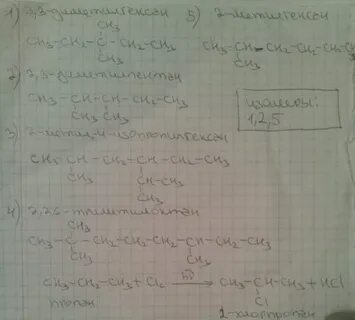 1) 3,3-диметилгексан
CH₃
CH₃-CH₂-C-CH₂-CH₃
CH₃
5) 2-метилгексан
CH₃-CH-CH₂-CH₂-CH₂-CH₃
CH₃
2) 2,3-диметилпентан
CH₃-CH-CH-CH₂-CH₃
CH₃ CH₃
изомеры:
1,2,5
3) 2-метил-4-изопропилгексан
CH₃-CH-CH₂-CH-CH₂-CH₃
CH₃ CH-CH₃
CH₃
4) 2,2,6-триметилоктан
CH₃
CH₃-C-CH₂-CH₂-CH₂-CH-CH₂-CH₃
CH₃ CH₃
CH₃-CH₂-CH₃ + Cl₂ → CH₃-CH-CH₃ + HCl
пропан Cl
2-хлорпропан